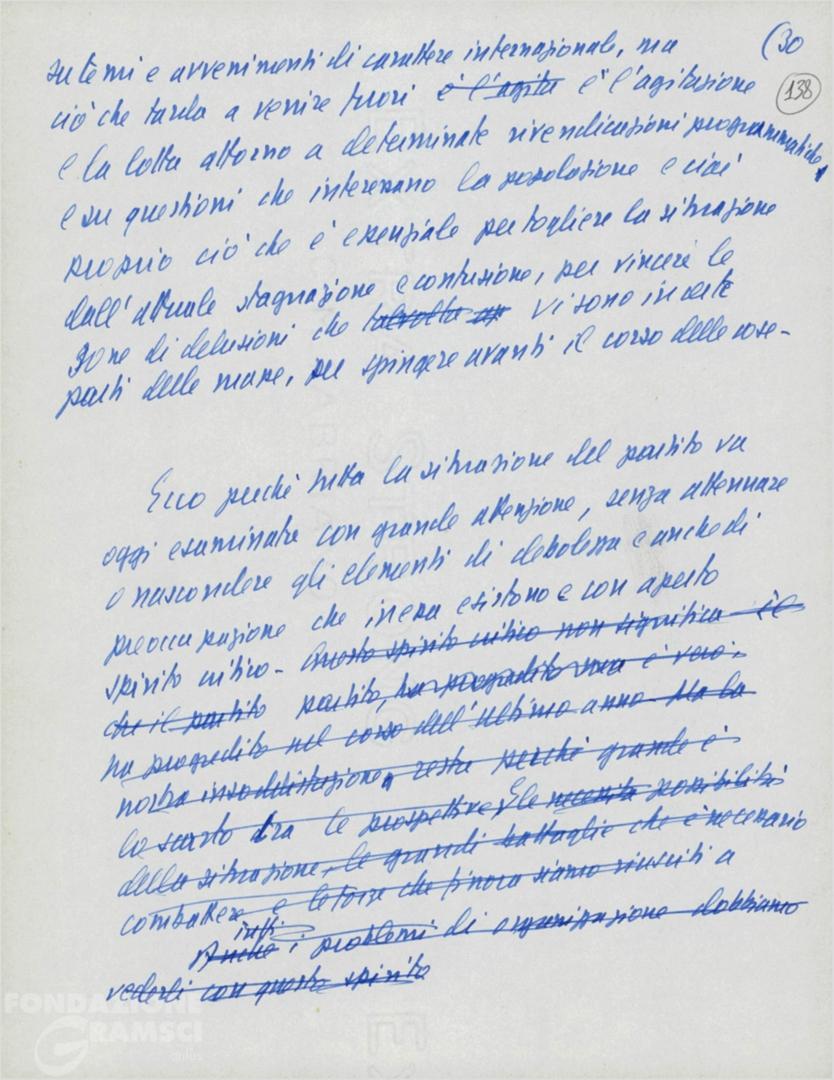 su temi e avvenimenti di carattere internazionale, ma
(30
138
ciò che tarda a venire fuori è l'agita è l'agitazione
e la lotta attorno a determinate rivendicazioni programmatiche,
e su questioni che interessano la popolazione e cioè
proprio ciò che è essenziale per togliere la situazione
dall'attuale stagnazione e confusione, per vincere le
zone di delusioni che talvolta vi sono in certe
parti delle masse, per spingere avanti il corso delle cose-
Ecco perché tutta la situazione del partito va
oggi esaminata con grande attenzione, senza attenuare
o nascondere gli elementi di debolezza e anche di
preoccupazione che in essa esistono e con aperto
spirito critico- Questo spirito critico non significa
che il partito partito, ha progredito ma è vero:
ha progredito nel corso dell'ultimo anno. Ma la
nostra insoddisfazione, resta perché grande è
lo scarto tra le prospettive, le necessità possibilità
della situazione, le grandi battaglie che è necessario
combattere e le forze che finora siamo riusciti a
tutti
Anche i problemi di organizzazione dobbiamo
vederli con questo spirito
FONDAZIONE
GRAMSCI
onlus